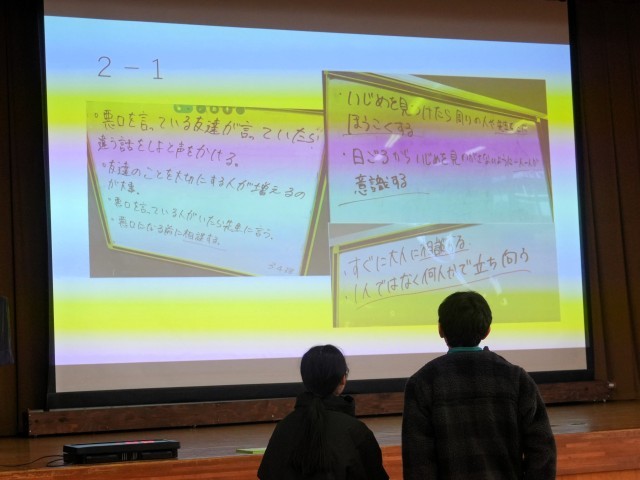 2－1
・悪口を言っている友達が言っていたら
違う話をしよと声をかける。
・友達のことを大切にする人が増えるの
が大事。
・悪口を言っている人がいたら先生に言う。
・悪口になる前に相談する。
・いじめを見つけたら周りの人や先生に
ほうこくする
・日ごろからいじめを見
意識する
・すぐに大人に相談する
・1人ではなく何人かで立ち向う